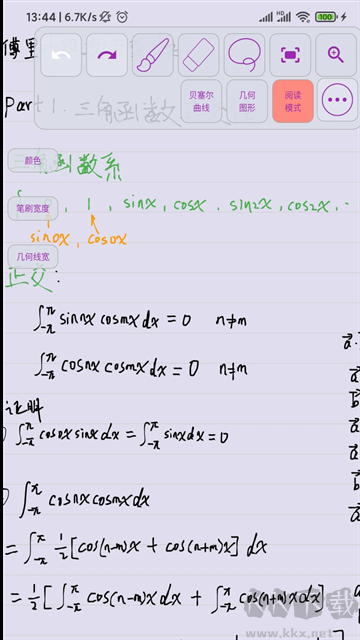 13:44 | 6.7K/s
100
傅里
贝塞尔曲线
几何图形
阅读模式
Part1. 三角函数
颜色
函数系
笔刷宽度
, 1 , sinx, cosx. sin2x, cos2x, ·
sin0x, cos0x
几何线宽
正交:
∫_{-π}^{π} sin nx cos mx dx = 0 n≠m
∫_{-π}^{π} cos nx cos mx dx = 0 n≠m
证明
) ∫_{-π}^{π} cos0x sinx dx = ∫_{-π}^{π} sinx dx = 0
) ∫_{-π}^{π} cos nx cos mx dx
= ∫_{-π}^{π} 1/2 [cos(n-m)x + cos(n+m)x] dx
= 1/2 [∫_{-π}^{π} cos(n-m)x dx + ∫_{-π}^{π} cos(n+m)x dx]
www.kkx.net